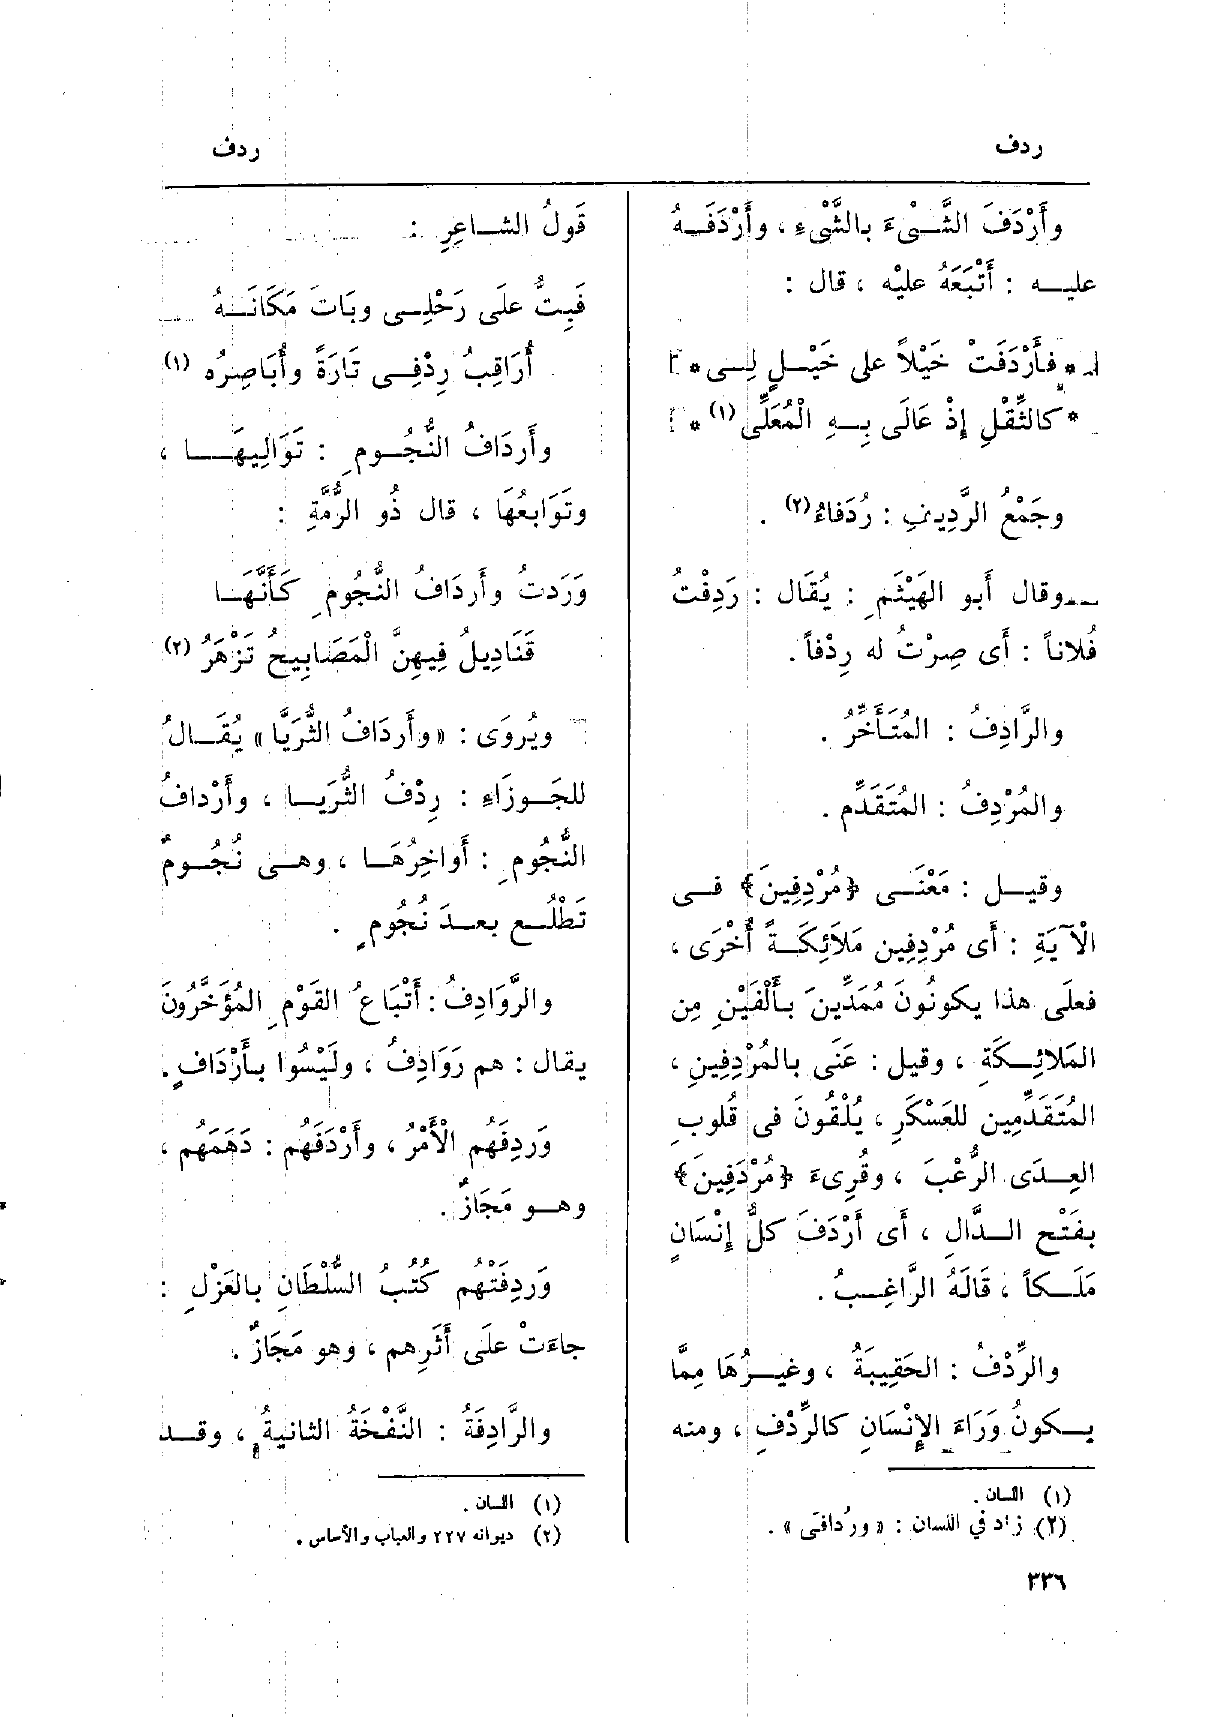 ردف
وأَرْدَفَ الشَّىْءَ بالشَّىْءِ ، وأَرْدَفَهُ
عليه : أَتْبَعَهُ عليْه ، قال :
* فأَرْدَفَتْ خَيْلاً على خَيْلٍ لِى *
* كالثِّقْلِ إِذْ عَالَى بِهِ الْمُعَلِّى (١) *
وجَمْعُ الرَّدِيفِ : رُدَفاءُ (٢) .
وقال أَبو الهَيْثَمِ : يُقَال : رَدِفْتُ
فُلاناً : أَى صِرْتُ له رِدْفاً .
والرَّادِفُ : المُتَأَخِّرُ .
والمُرْدِفُ : المُتَقَدِّم .
وقيل : مَعْنَى ﴿مُرْدِفِينَ﴾ فى
الْآيَةِ : أَى مُرْدِفِين مَلَائِكَةً أُخْرَى ،
فعلَى هذا يكونُونَ مُمَدِّينَ بأَلْفَيْنِ مِن
المَلائِكَةِ ، وقيل : عَنَى بالمُرْدِفِينِ ،
المُتَقَدِّمِين للعَسْكَرِ ، يُلْقُونَ فى قُلوبِ
العِدَى الرُّعْبَ ، وقُرِىءَ ﴿مُرْدَفِينَ﴾
بفَتْح الدَّالِ ، أَى أَرْدَفَ كلُّ إِنْسَانٍ
مَلَكاً ، قَالَهُ الرَّاغِبُ .
والرِّدْفُ : الحَقِيبَةُ ، وغيرُهَا مِمَّا
يكونُ وَرَاءَ الإِنْسَانِ كالرِّدْفِ ، ومنه
(١) اللسان .
(٢) زاد في اللسان : « ورُدافَى » .
ردف
قَولُ الشاعِرِ :
فَبِتُّ علَى رَحْلِى وبَاتَ مَكَانَهُ
أُرَاقِبُ رِدْفِى تَارَةً وأُبَاصِرُه (١)
وأَردَافُ النُّجُومِ : تَوَالِيهَا ،
وتَوَابعُهَا ، قال ذُو الرُّمَّةِ :
وَرَدتُ وأَردَافُ النُّجُومِ كَأَنَّهَا
قَنَادِيلُ فِيهِنَّ الْمَصَابِيحُ تَزْهَرُ (٢)
ويُروَى : « وأَردَافُ الثُّرَيَّا » يُقَالُ
للجَوزَاءِ : رِدْفُ الثُّرَيا ، وأَرْدافُ
النُّجُومِ : أَواخِرُهَا ، وهى نُجُومٌ
تَطْلُع بعدَ نُجُومٍ .
والرَّوَادِفُ : أَتْبَاعُ القَوْمِ المُؤَخَّرُونَ
يقال : هم رَوَادِفُ ، ولَيْسُوا بأَرْدَافٍ .
وَرِدفَهُم الْأَمْرُ ، وأَرْدَفَهُم : دَهَمَهُم ،
وهو مَجَازٌ .
وَردِفَتْهُم كُتُبُ السُّلْطَانِ بالعَزْلِ :
جاءَتْ علَى أَثَرِهم ، وهو مَجَازٌ .
والرَّادِفَةُ : النَّفْخَةُ الثانيةُ ، وقد
(١) اللسان .
(٢) ديوانه ٢٢٧ والعباب والأساس .
٣٣٦